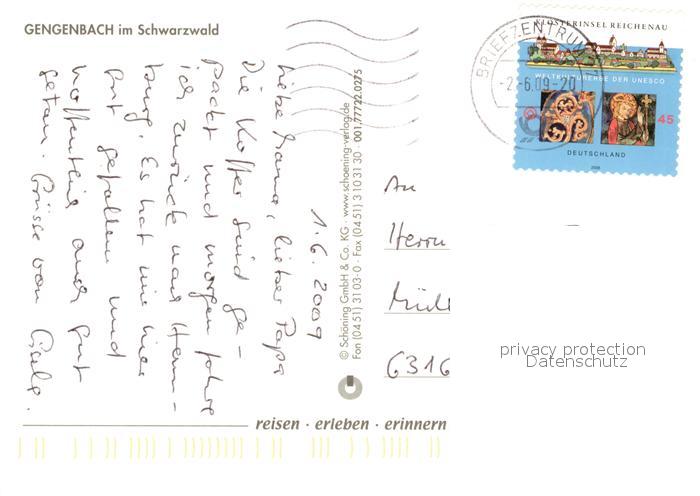 GENGENBACH im Schwarzwald
1.6.2009
Liebe Mama, lieber Papa
Die Koffer sind ge-
packt und morgen fahre
ich zurück nach Hem-
burg. Es hat mir hier
gut gefallen und
hoffentlich auch gut
getan. Grüsse von Gisela.
© Schöning GmbH & Co. KG · www.schoening-verlag.de
Fon (04 51) 31 03-0 · Fax (04 51) 3 10 31 30 · 001.77722.0275
BRIEFZENTRUM
-2.-6.09-20
KLOSTERINSEL REICHENAU
WELTKULTURERBE DER UNESCO
45
DEUTSCHLAND
2008
An
Herrn
Müll
6316
privacy protection
Datenschutz
reisen · erleben · erinnern